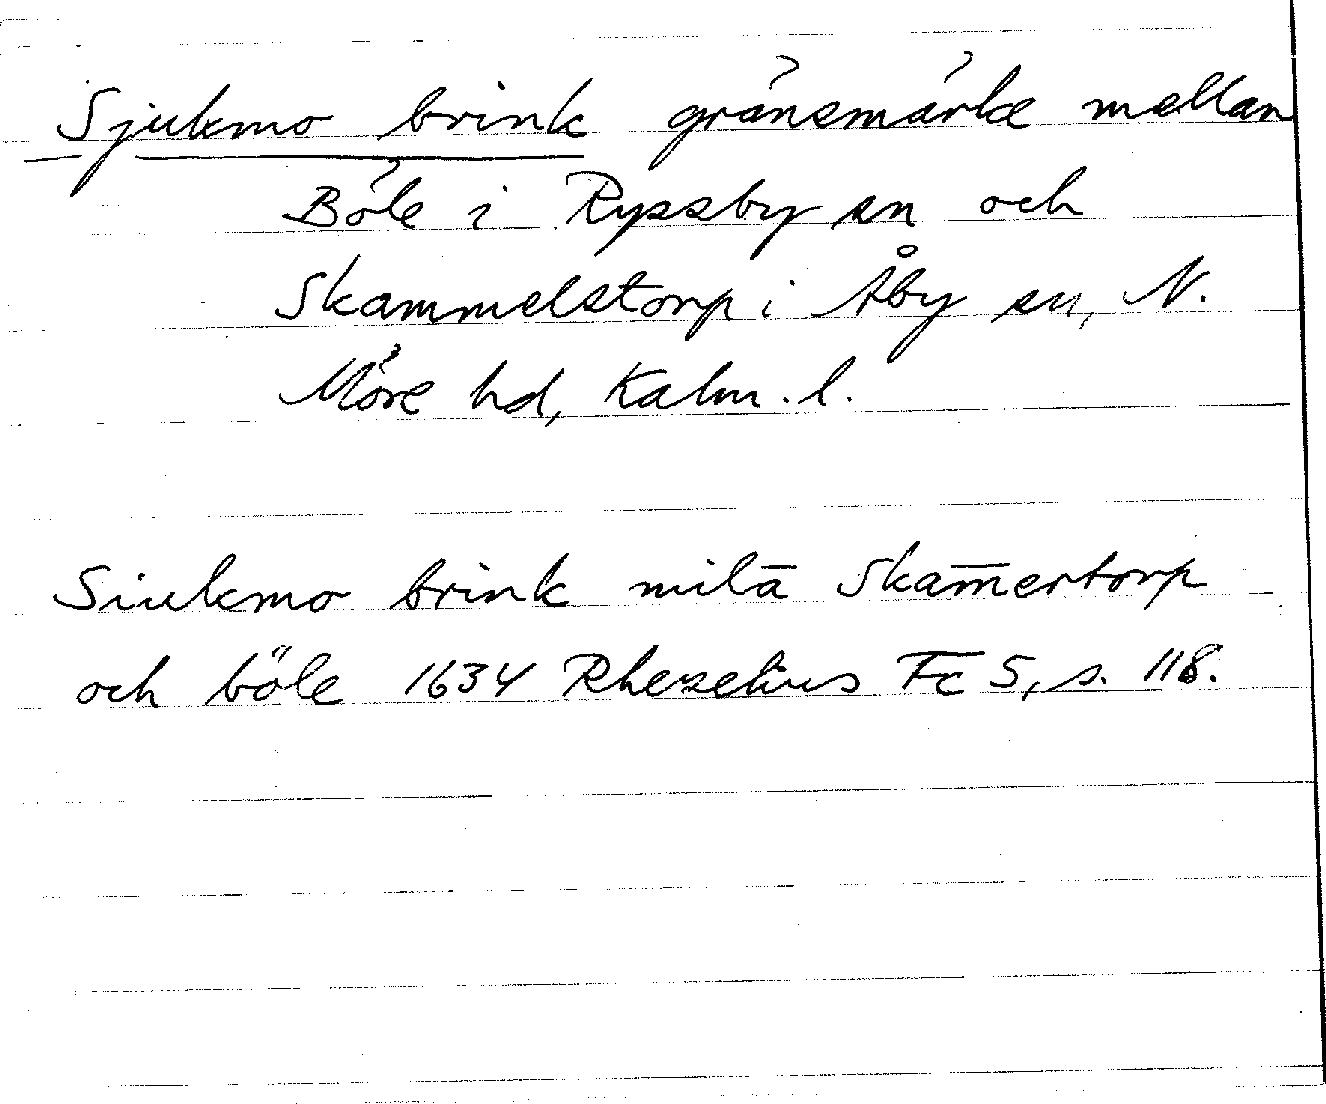 Sjukmo brink gränsmärke mellan
Böle i Ryssby sn och
Skammelstorp i Åby sn, N.
Möre hd, Kalm. l.
Siukmo brink milā Skam̄ertorp
och böle 1634 Rhezelius Fc 5, s. 118.